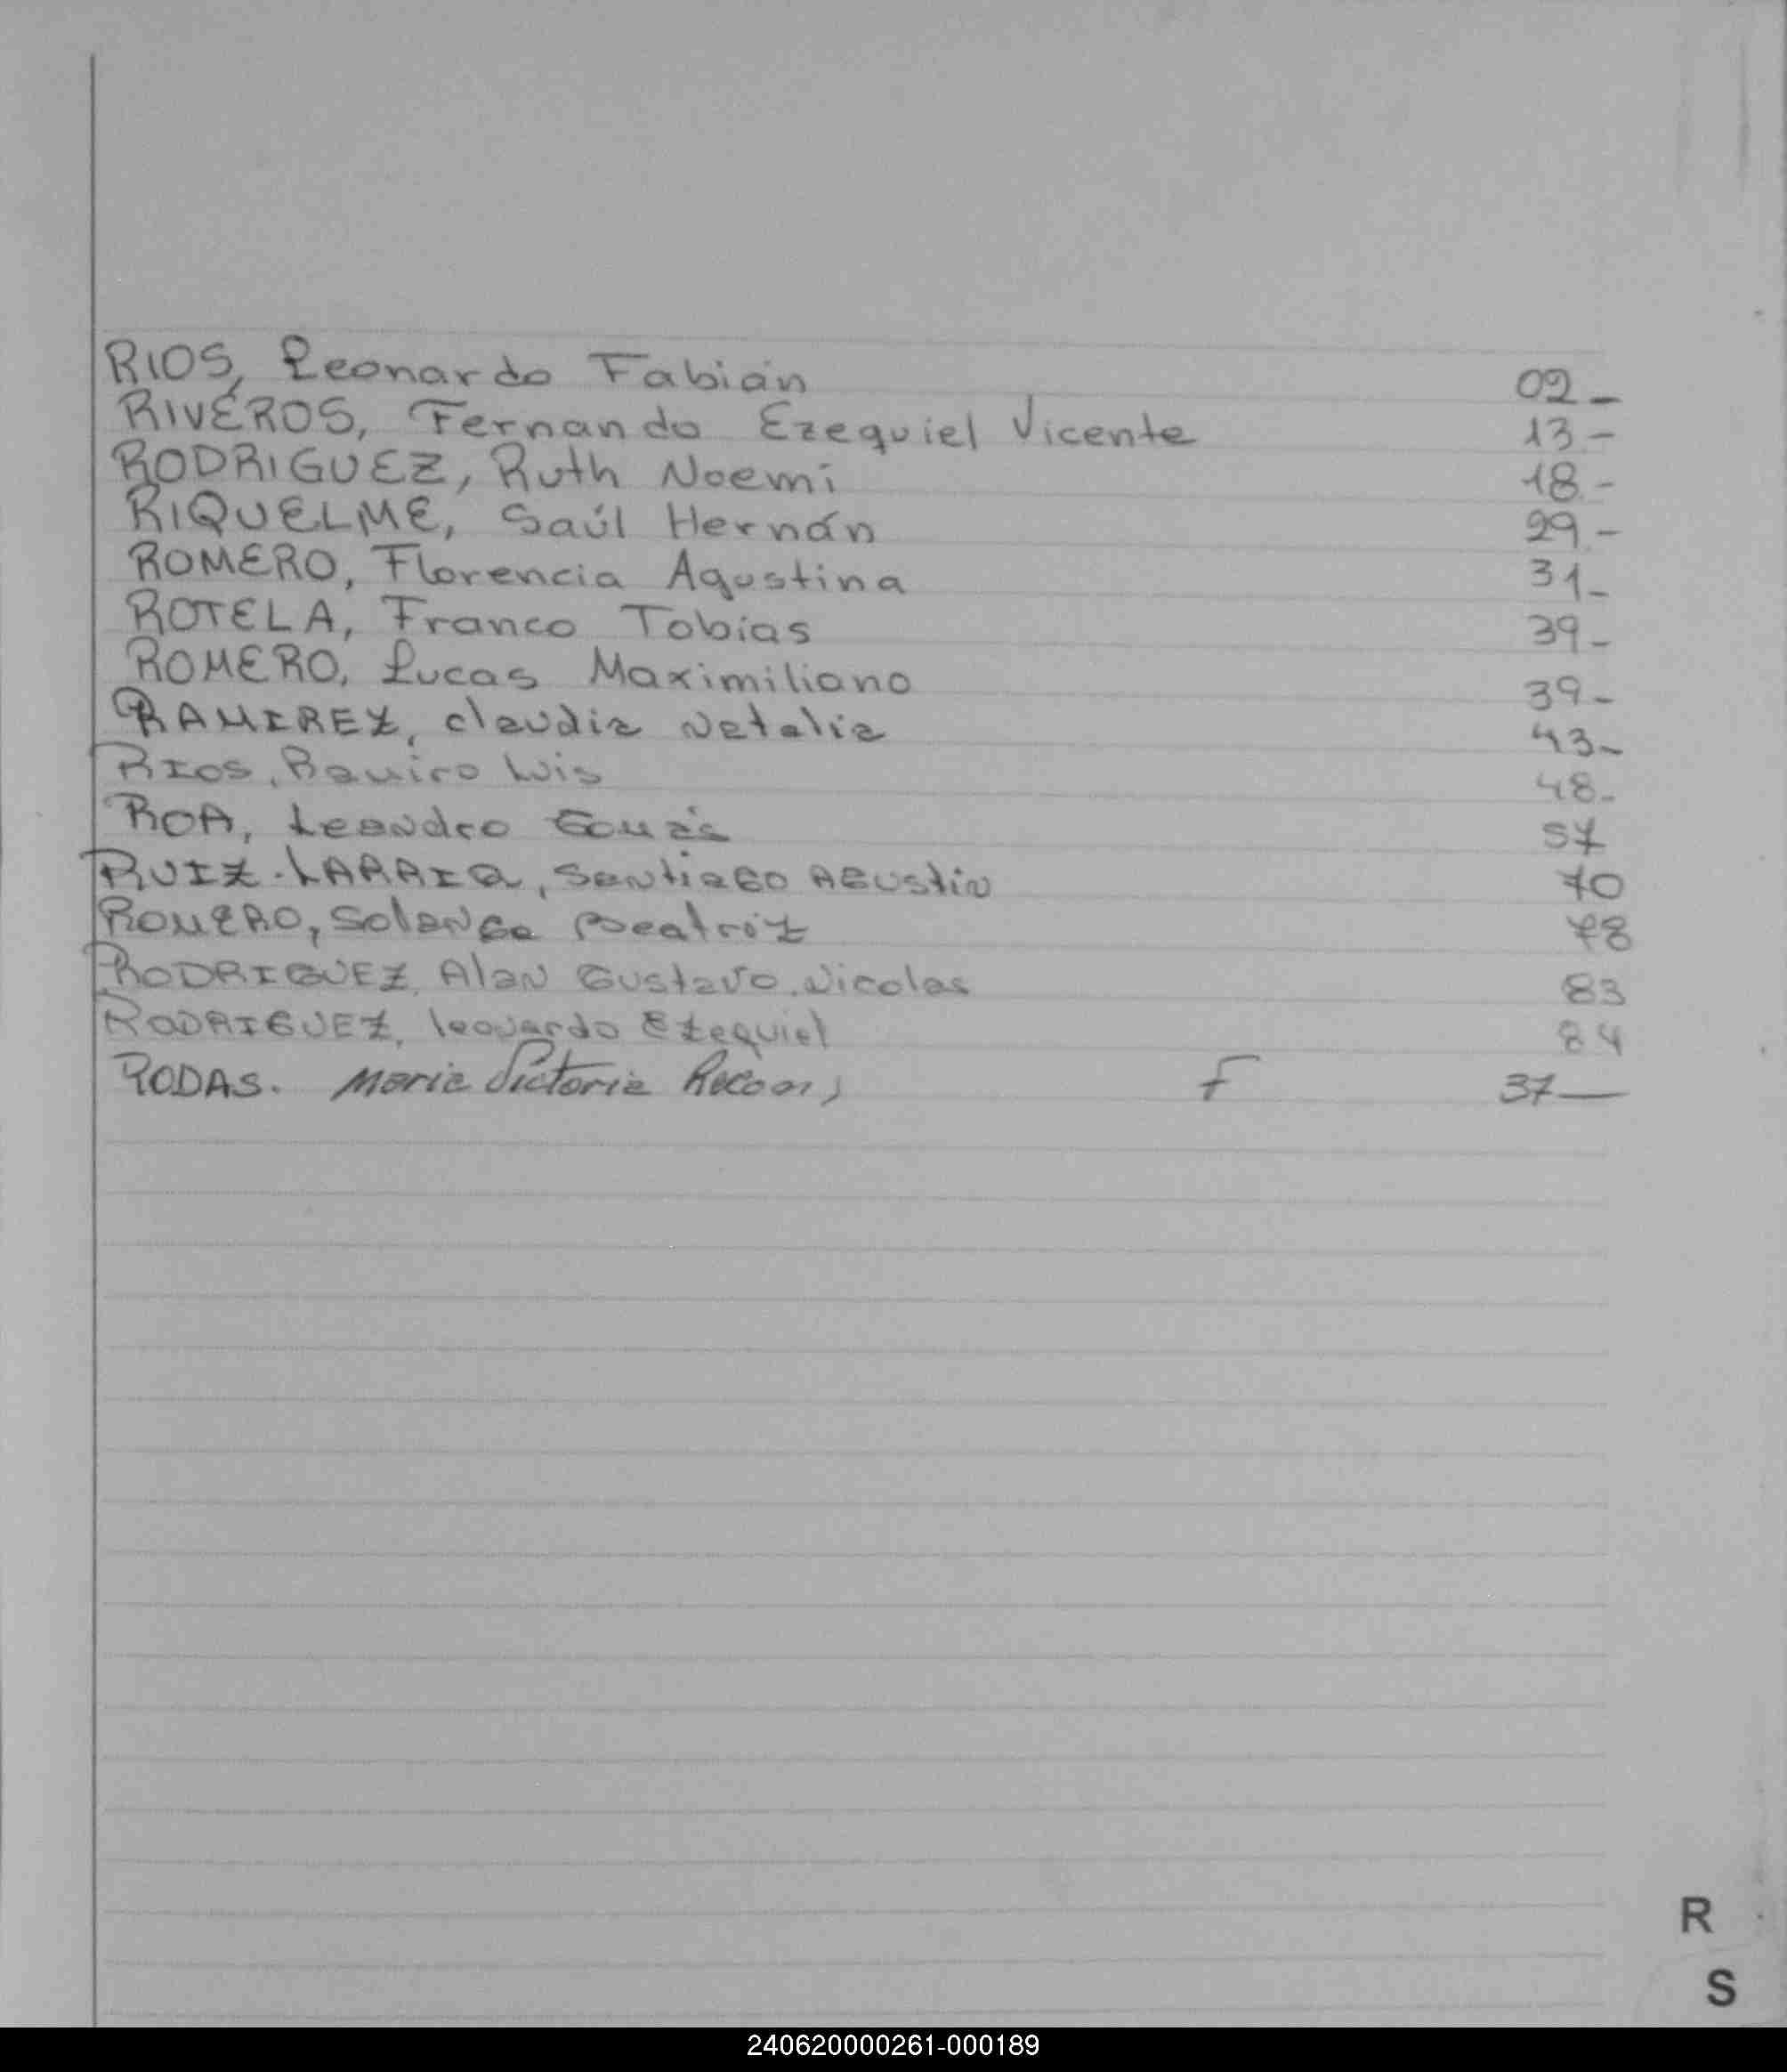 RIOS, Leonardo Fabián 02_
RIVEROS, Fernando Ezequiel Vicente 13-
RODRIGUEZ, Ruth Noemi 18-
RIQUELME, Saúl Hernán 29-
ROMERO, Florencia Agustina 31_
ROTELA, Franco Tobías 39-
ROMERO, Lucas Maximiliano 39-
RAMIREZ, claudia Natalia 43-
RIOS, Ramiro Luis 48-
ROA, Leandro Tomás 57
RUIZ-LARREA, Santiago Agustin 70
ROMERO, Solange Beatriz 78
RODRIGUEZ, Alan Gustavo Nicolas 83
RODRIGUEZ, leonardo Ezequiel 84
RODAS. Maria Victoria F 37—
R
S
240620000261-000189